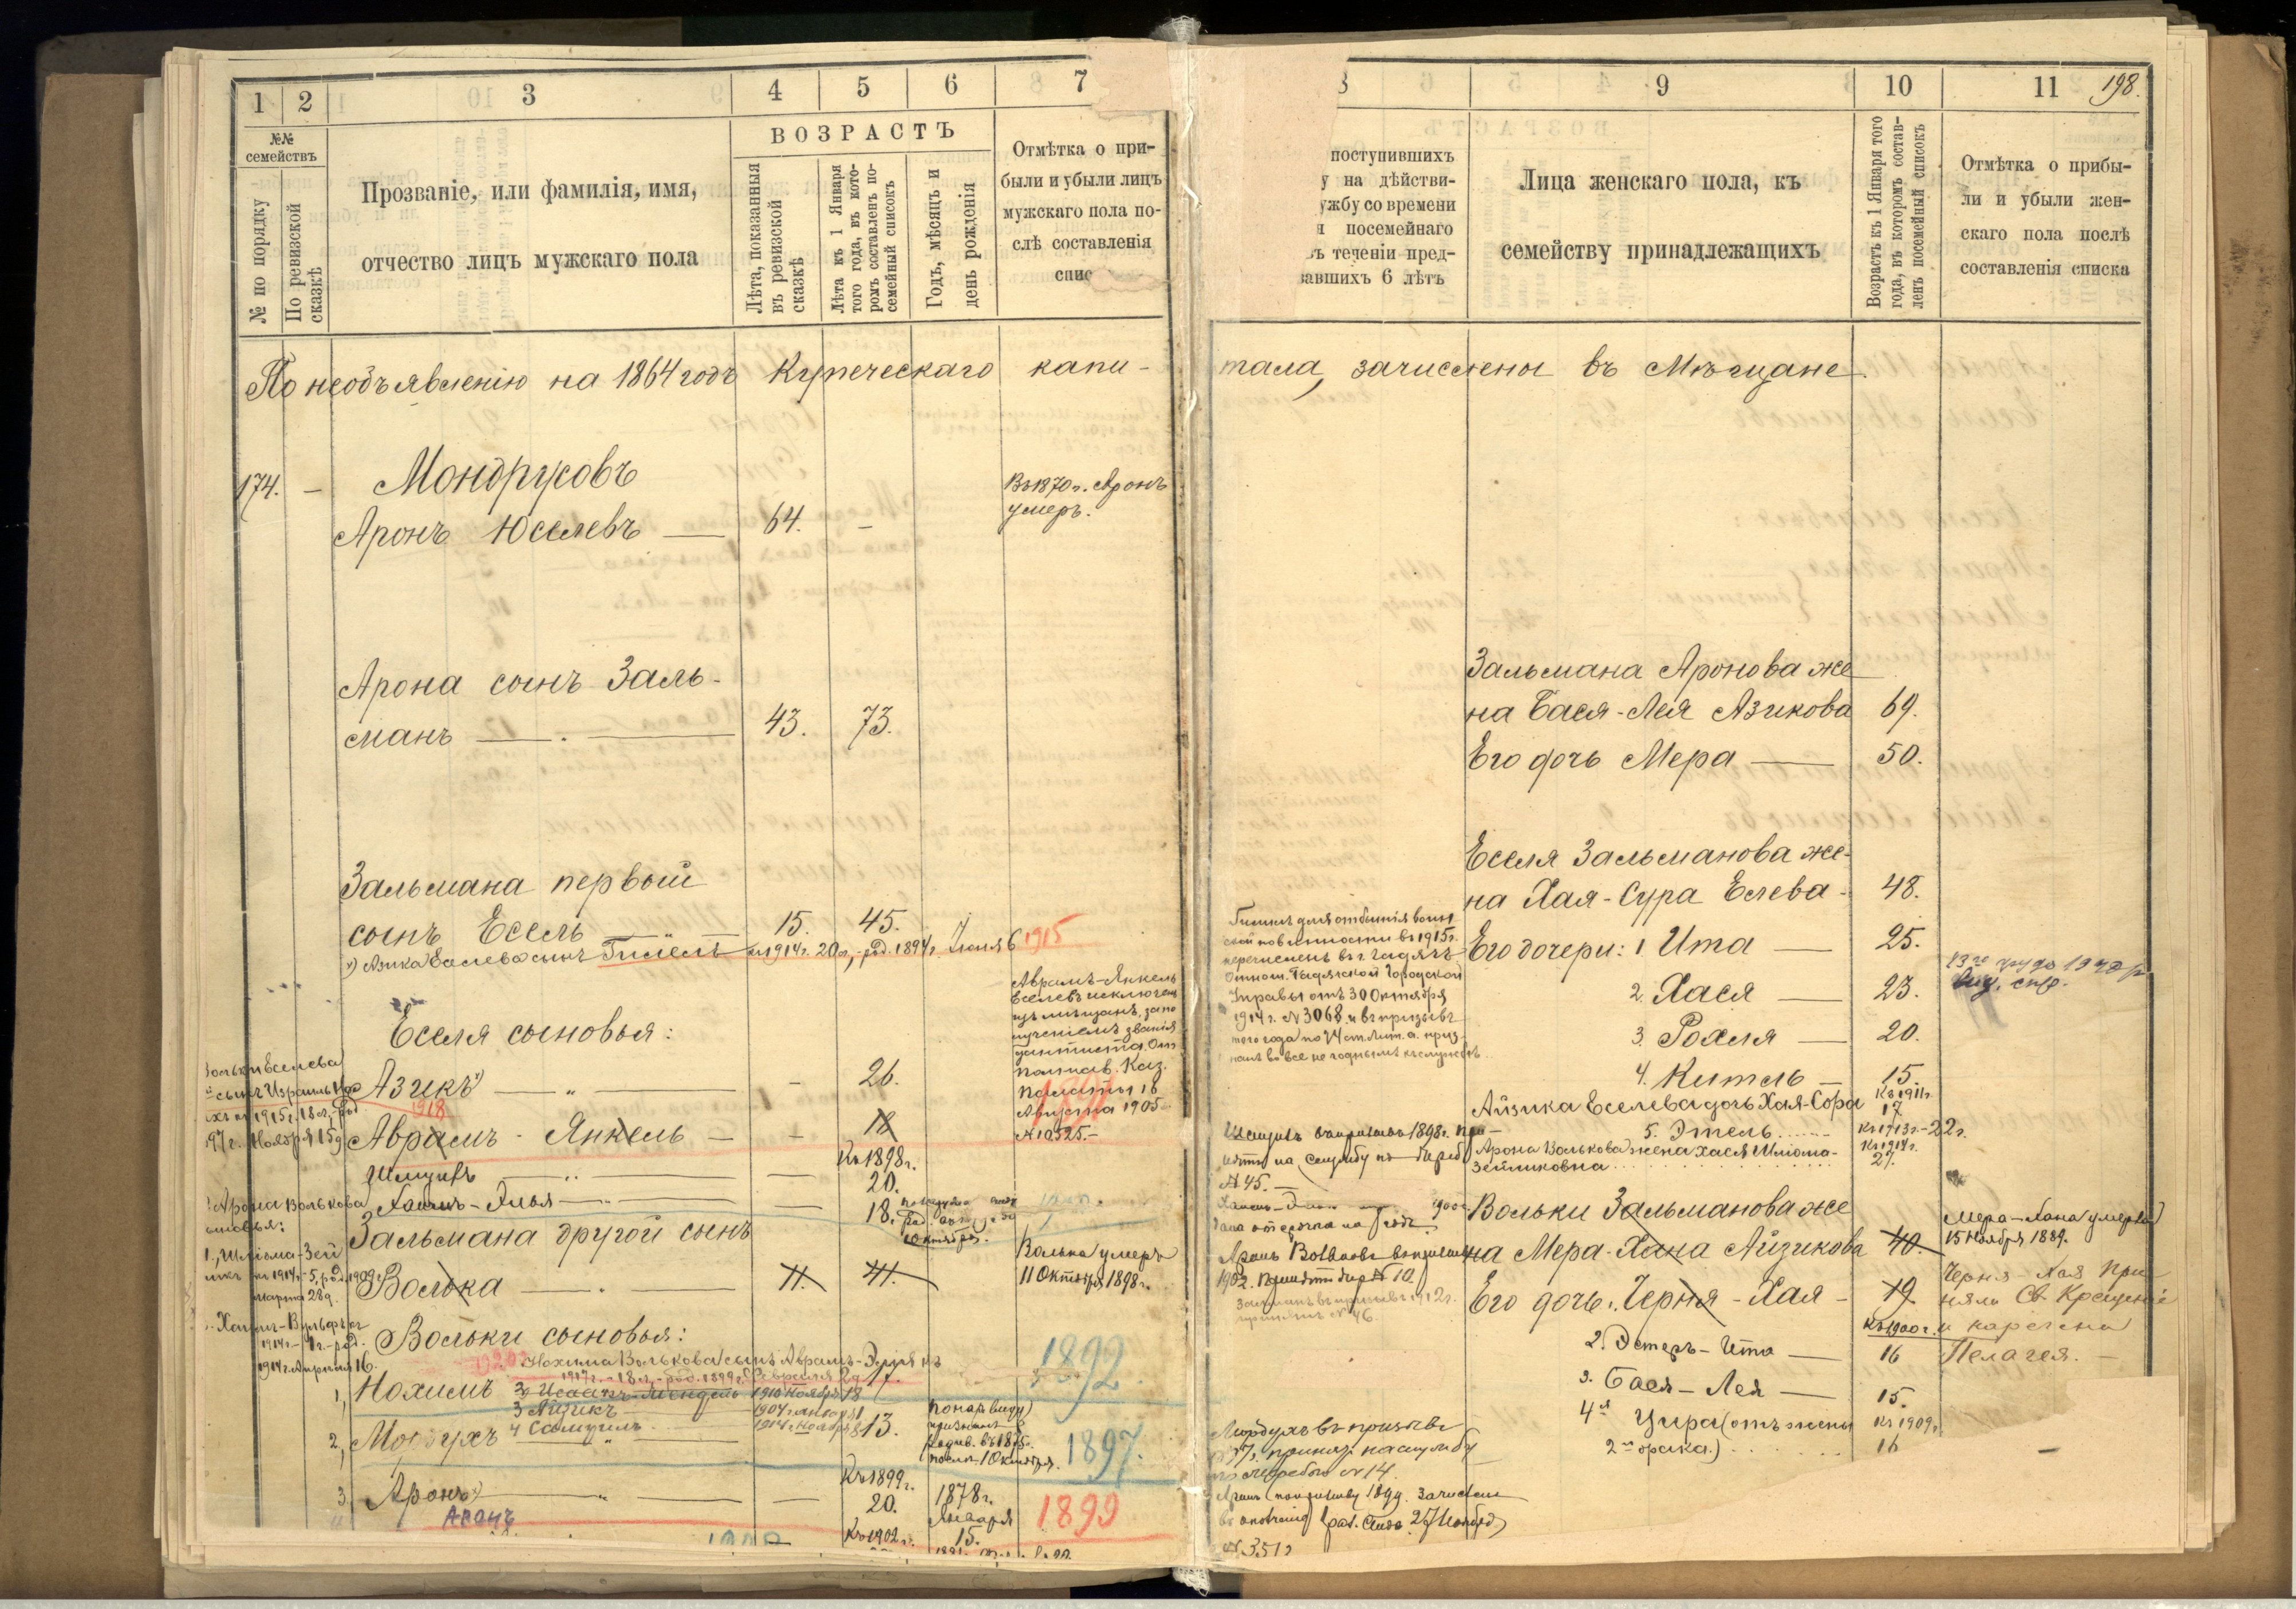 1 2 3 4 5 6 7
№№ семействъ
№ по порядку
По ревизской сказкѣ
Прозваніе, или фамилія, имя,
отчество лицъ мужскаго пола
ВОЗРАСТЪ
Лѣта, показанныя
въ ревизской
сказкѣ
Лѣта къ 1 Января
того года, въ кото-
ромъ составленъ по-
семейный списокъ
Годъ, мѣсяцъ и
день рожденія
Отмѣтка о при-
были и убыли лицъ
мужскаго пола по-
слѣ составленія
спис
По необъявленію на 1864 годъ Купеческаго капи-
174. — Мондрусовъ
Аронъ Юселевъ — 64. —
Въ 1870 г. Аронъ
умеръ.
Арона сынъ Заль-
манъ — 43. 73.
Зальмана первый
сынъ Есель 15. 45.
1) Азика Еселева сынъ Гилель къ 1914 г. 20 л., род. 1894 г. Іюля 6 1915
Еселя сыновья:
Аврамъ-Янкель
Еселевъ исключенъ
изъ мѣщанъ, за по
лученіемъ званія
дантиста. От.
Полтав. Каз.
Палаты 18
Августа 1905
№ 12525.
Вольки Еселева
сынъ Израиль
къ 1915 г. 18 л., род.
97 г. Ноября 15 д.
Азикъ 1) — 26.
1918
Аврамъ - Янкель — - 18
Шмуилъ — Къ 1898 г.
20.
Хаимъ-Элья — 18.
Октября.
Арона Волькова
сыновья:
1., Шліома-Зей
ликъ къ 1914 г. 5, род. 1909 г.
Марта 28 д.
Зальмана другой сынъ
Волька — 11. 41.
Волька умеръ
11 Октября 1898 г.
Хаимъ-Вульфъ
1914 г. - 1 г. - род.
1914 г. Апрѣля 16.
Вольки сыновья:
Нохима Волькова сынъ Аврамъ-
1917 г. - 18 л. - род. 1899 г. Февраля
1, Нохимъ 17. 1892.
2, Исаакъ-Мендель 1910 Ноября 18
3 Айзикъ 1904 г. Января 1
4 Самуилъ 1914 г. Ноября 8
2, Мордухъ 13. 1897.
по нар. виду
признанъ
родив. въ 1875 г.
10 Октября.
3, Аронъ — Къ 1899 г.
20.
1878 г.
Января
15.
1899
Аронъ
Къ 1902 г.
8 9 10 11 198.
поступившихъ
у на дѣйстви-
ужбу со времени
я посемейнаго
ъ теченіи пред-
вавшихъ 6 лѣтъ
Лица женскаго пола, къ
семейству принадлежащихъ
Возрастъ къ 1 Января того
года, въ которомъ состав-
ленъ посемейный списокъ
Отмѣтка о прибы-
ли и убыли жен-
скаго пола послѣ
составленія списка
тала, зачислены въ Мѣщане.
Зальмана Аронова же
на Бася-Лея Азикова 69.
Его дочь Мера — 50.
Еселя Зальманова же-
на Хая-Сура Елева - 48.
Гилель для отбытія воин
ской повинности въ 1915 г.
перечисленъ въ г. Гадячъ
отнош. Гадячской Городской
Управы отъ 30 Октября
1914 г. № 3068 и въ призывъ
того года по 74 ст. лит. а. приз
нанъ во все не годнымъ къ службѣ
Его дочери: 1 Ита — 25.
2. Хася — 23.
3. Рохля — 20.
4. Китель — 15.
Айзика Еселева дочь Хая-Сора Къ 1911 г.
17
5. Этель Къ 1913 г. - 22 г.
Арона Волькова жена Хася Шлiома- Къ 1914 г.
Зейликовна 27.
Шмуилъ въ призывъ 1898 г. при-
нятъ на службу по жреб
№ 45. —
Вольки Зальманова же
на Мера-Хана Айзикова 40.
Мера-Хана умерла
15 Ноября 1889.
Его дочь: Черня-Хая - 19.
Черня-Хая при
няла Св. Крещеніе
и наречена
Пелагея. —
2. Эстеръ-Ита — Къ 1900 г.
16
3. Бася-Лея — 15.
4я Цира (отъ жены Къ 1909 г.
2го брака.) 16
Мордухъ въ призывъ
97 г. принятъ на службу
по жребію № 14.
Аронъ по призыву 1899. зачисленъ
№ 3512